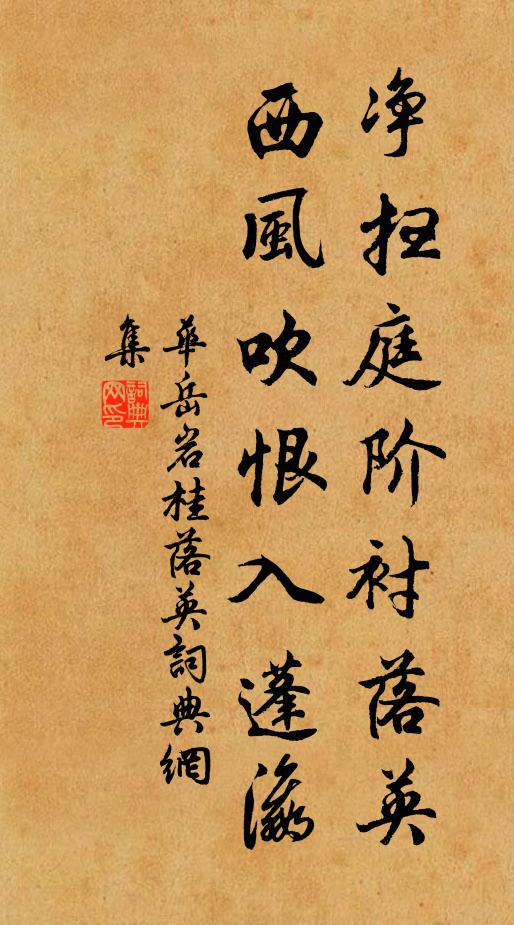 净扫庭阶衬落英
西風吹恨入蓬瀛
華岳岩桂落英詞典網
集
詞典網印